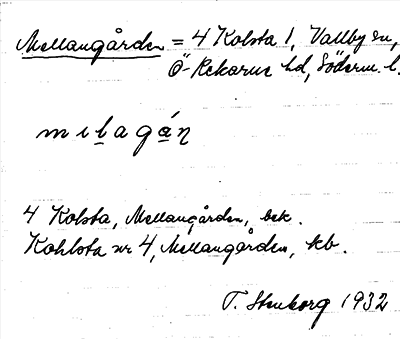 Mellangården = 4 Kolsta 1, Vallby sn,
Ö-Rekarne hd, Söderm. l.
m i l a g á n
4 Kolsta, Mellangården, bek.
Kohlsta nr 4, Mellangården, kb.
T. Stenborg 1932